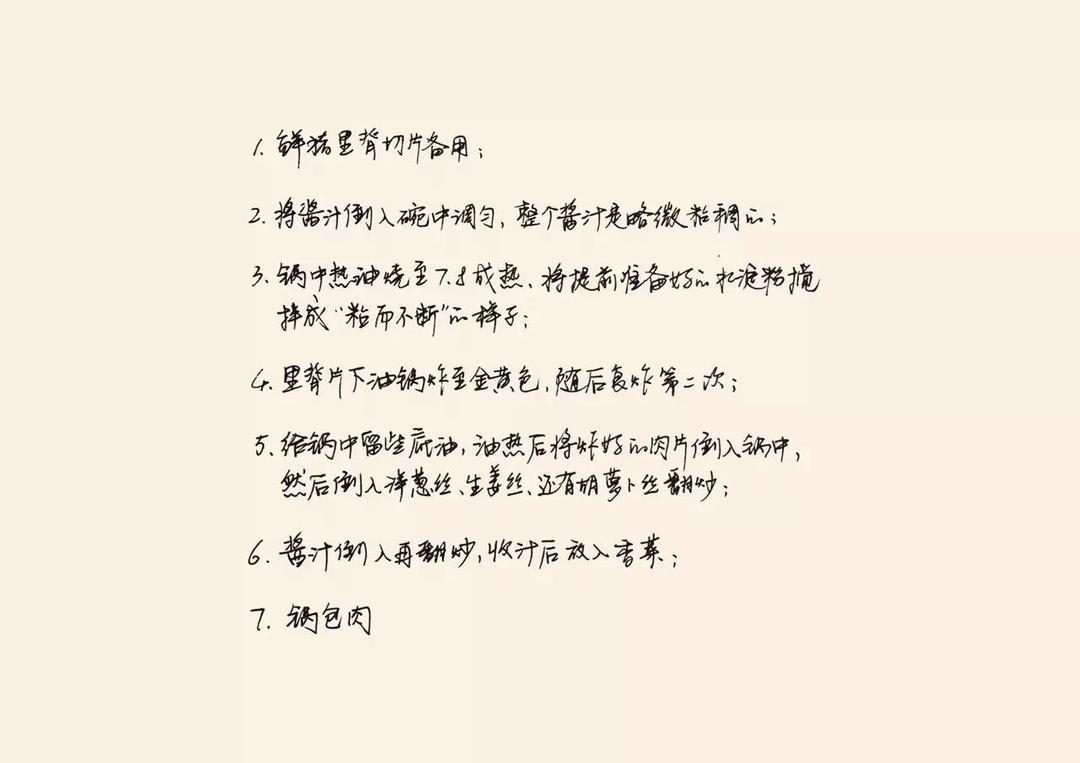 1. 鲜猪里脊切片备用;
2. 将酱汁倒入碗中调匀, 整个酱汁是略微粘稠的;
3. 锅中热油烧至7.8成热、将提前准备好的水淀粉搅
拌成“粘而不断”的样子;
4. 里脊片下油锅炸至金黄色、随后复炸第二次;
5. 给锅中留些底油, 油热后将炸好的肉片倒入锅中,
然后倒入洋葱丝、生姜丝、还有胡萝卜丝翻炒;
6. 酱汁倒入再翻炒, 收汁后放入香菜;
7. 锅包肉